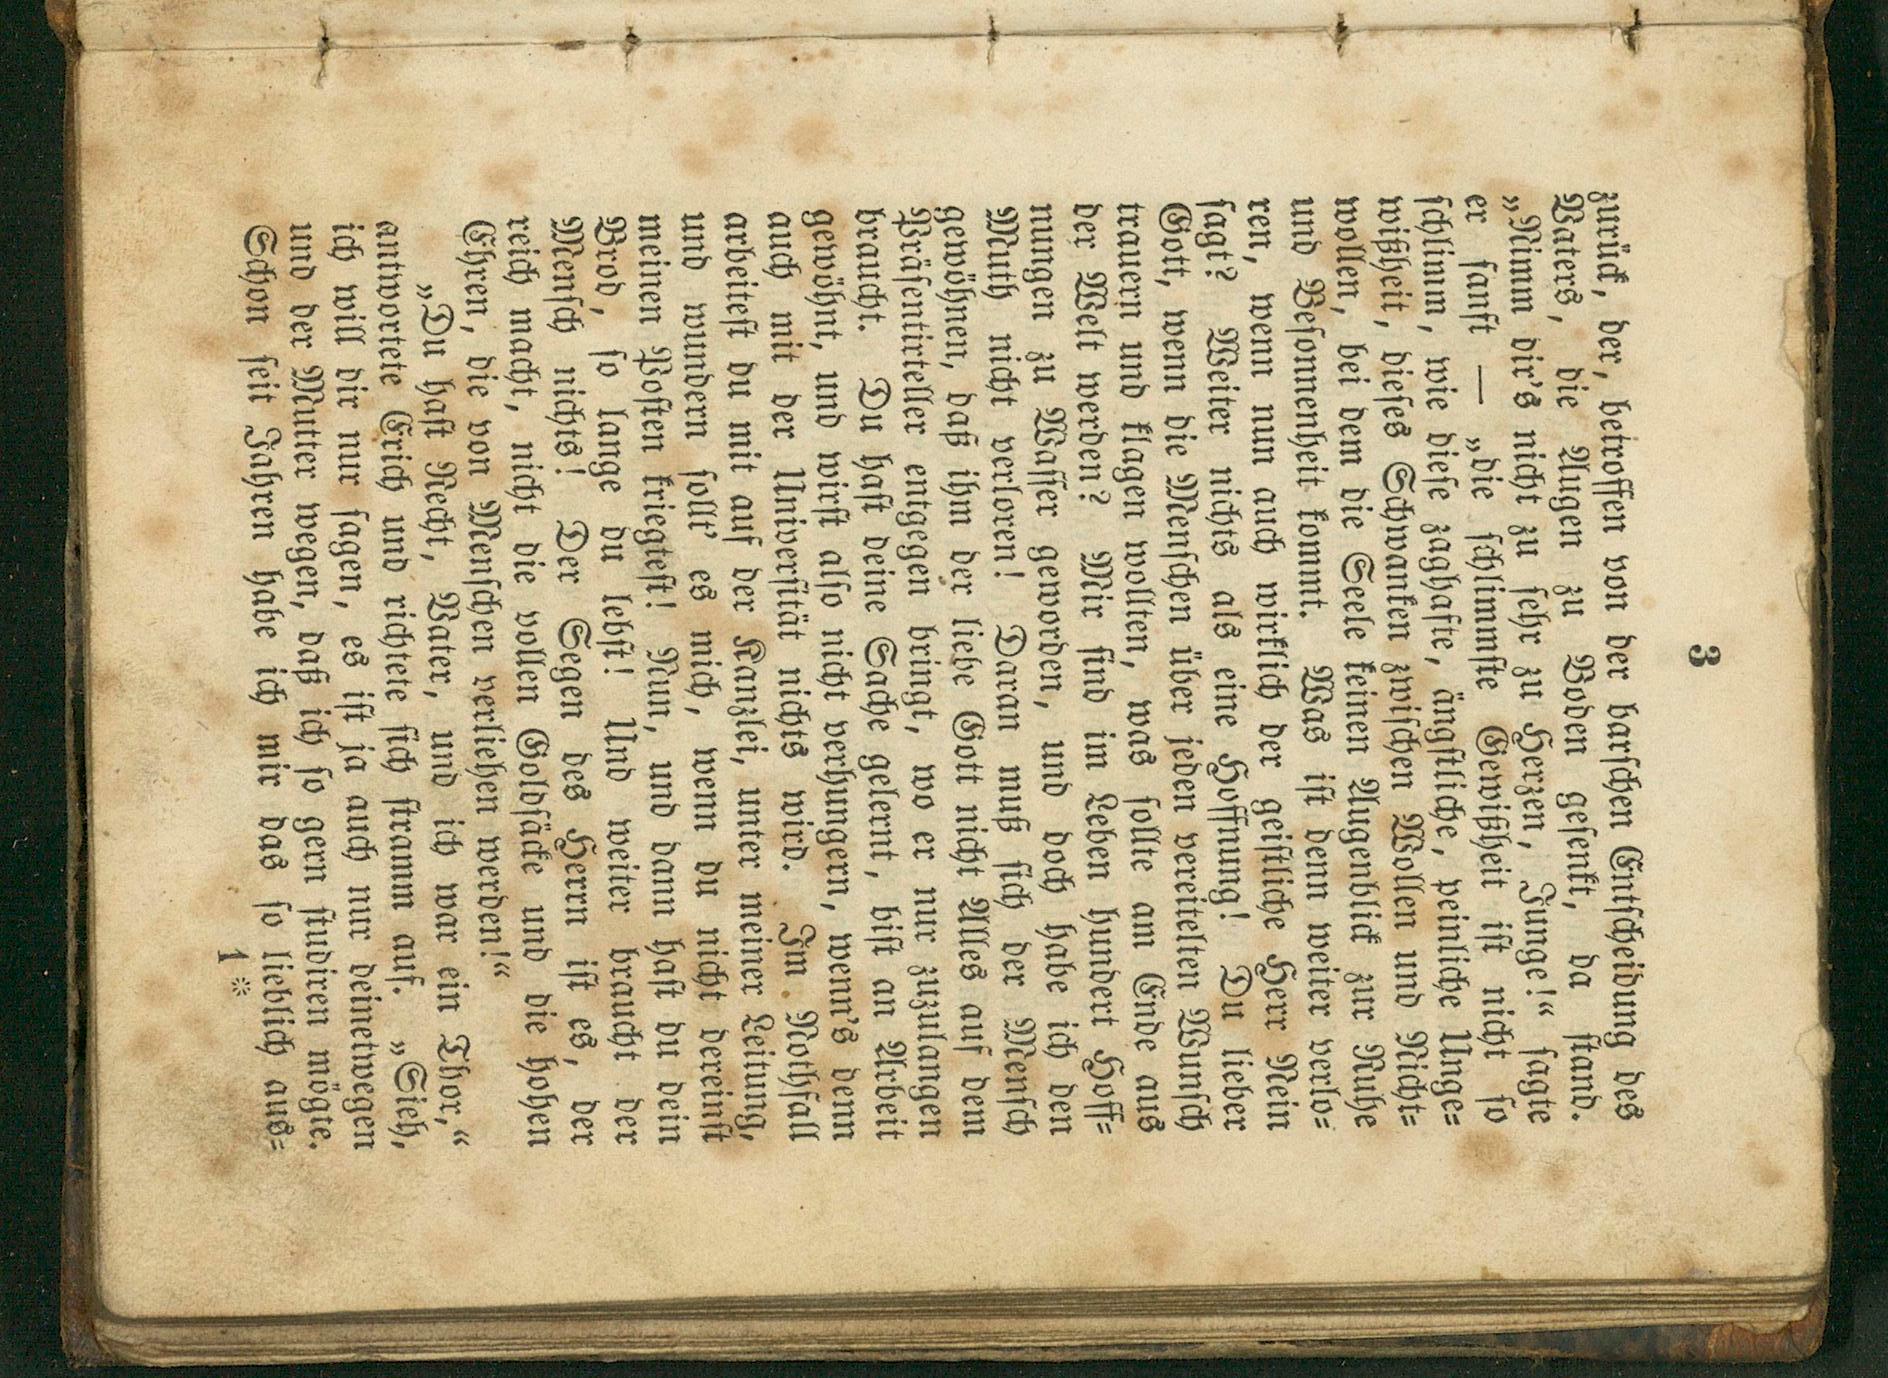 3
zurück, der, betroffen von der barschen Entscheidung des
Vaters, die Augen zu Boden gesenkt, da stand.
„Nimm dir's nicht zu sehr zu Herzen, Junge!“ sagte
er sanft — „die schlimmste Gewißheit ist nicht so
schlimm, wie diese zaghafte, ängstliche, peinliche Unge=
wißheit, dieses Schwanken zwischen Wollen und Nicht=
wollen, bei dem die Seele keinen Augenblick zur Ruhe
und Besonnenheit kommt. Was ist denn weiter verlo=
ren, wenn nun auch wirklich der geistliche Herr Nein
sagt? Weiter nichts als eine Hoffnung! Du lieber
Gott, wenn die Menschen über jeden vereitelten Wunsch
trauern und klagen wollten, was sollte am Ende aus
der Welt werden? Mir sind im Leben hundert Hoff=
nungen zu Wasser geworden, und doch habe ich den
Muth nicht verloren! Daran muß sich der Mensch
gewöhnen, daß ihm der liebe Gott nicht Alles auf dem
Präsentirteller entgegen bringt, wo er nur zuzulangen
braucht. Du hast deine Sache gelernt, bist an Arbeit
gewöhnt, und wirst also nicht verhungern, wenn's denn
auch mit der Universität nichts wird. Im Nothfall
arbeitest du mit auf der Kanzlei, unter meiner Leitung,
und wundern sollt' es mich, wenn du nicht dereinst
meinen Posten kriegtest! Nun, und dann hast du dein
Brod, so lange du lebst! Und weiter braucht der
Mensch nichts! Der Segen des Herrn ist es, der
reich macht, nicht die vollen Goldsäcke und die hohen
Ehren, die von Menschen verliehen werden!“
„Du hast Recht, Vater, und ich war ein Thor,“
antwortete Erich und richtete sich stramm auf. „Sieh,
ich will dir nur sagen, es ist ja auch nur deinetwegen
und der Mutter wegen, daß ich so gern studiren mögte.
Schon seit Jahren habe ich mir das so lieblich aus=
1*